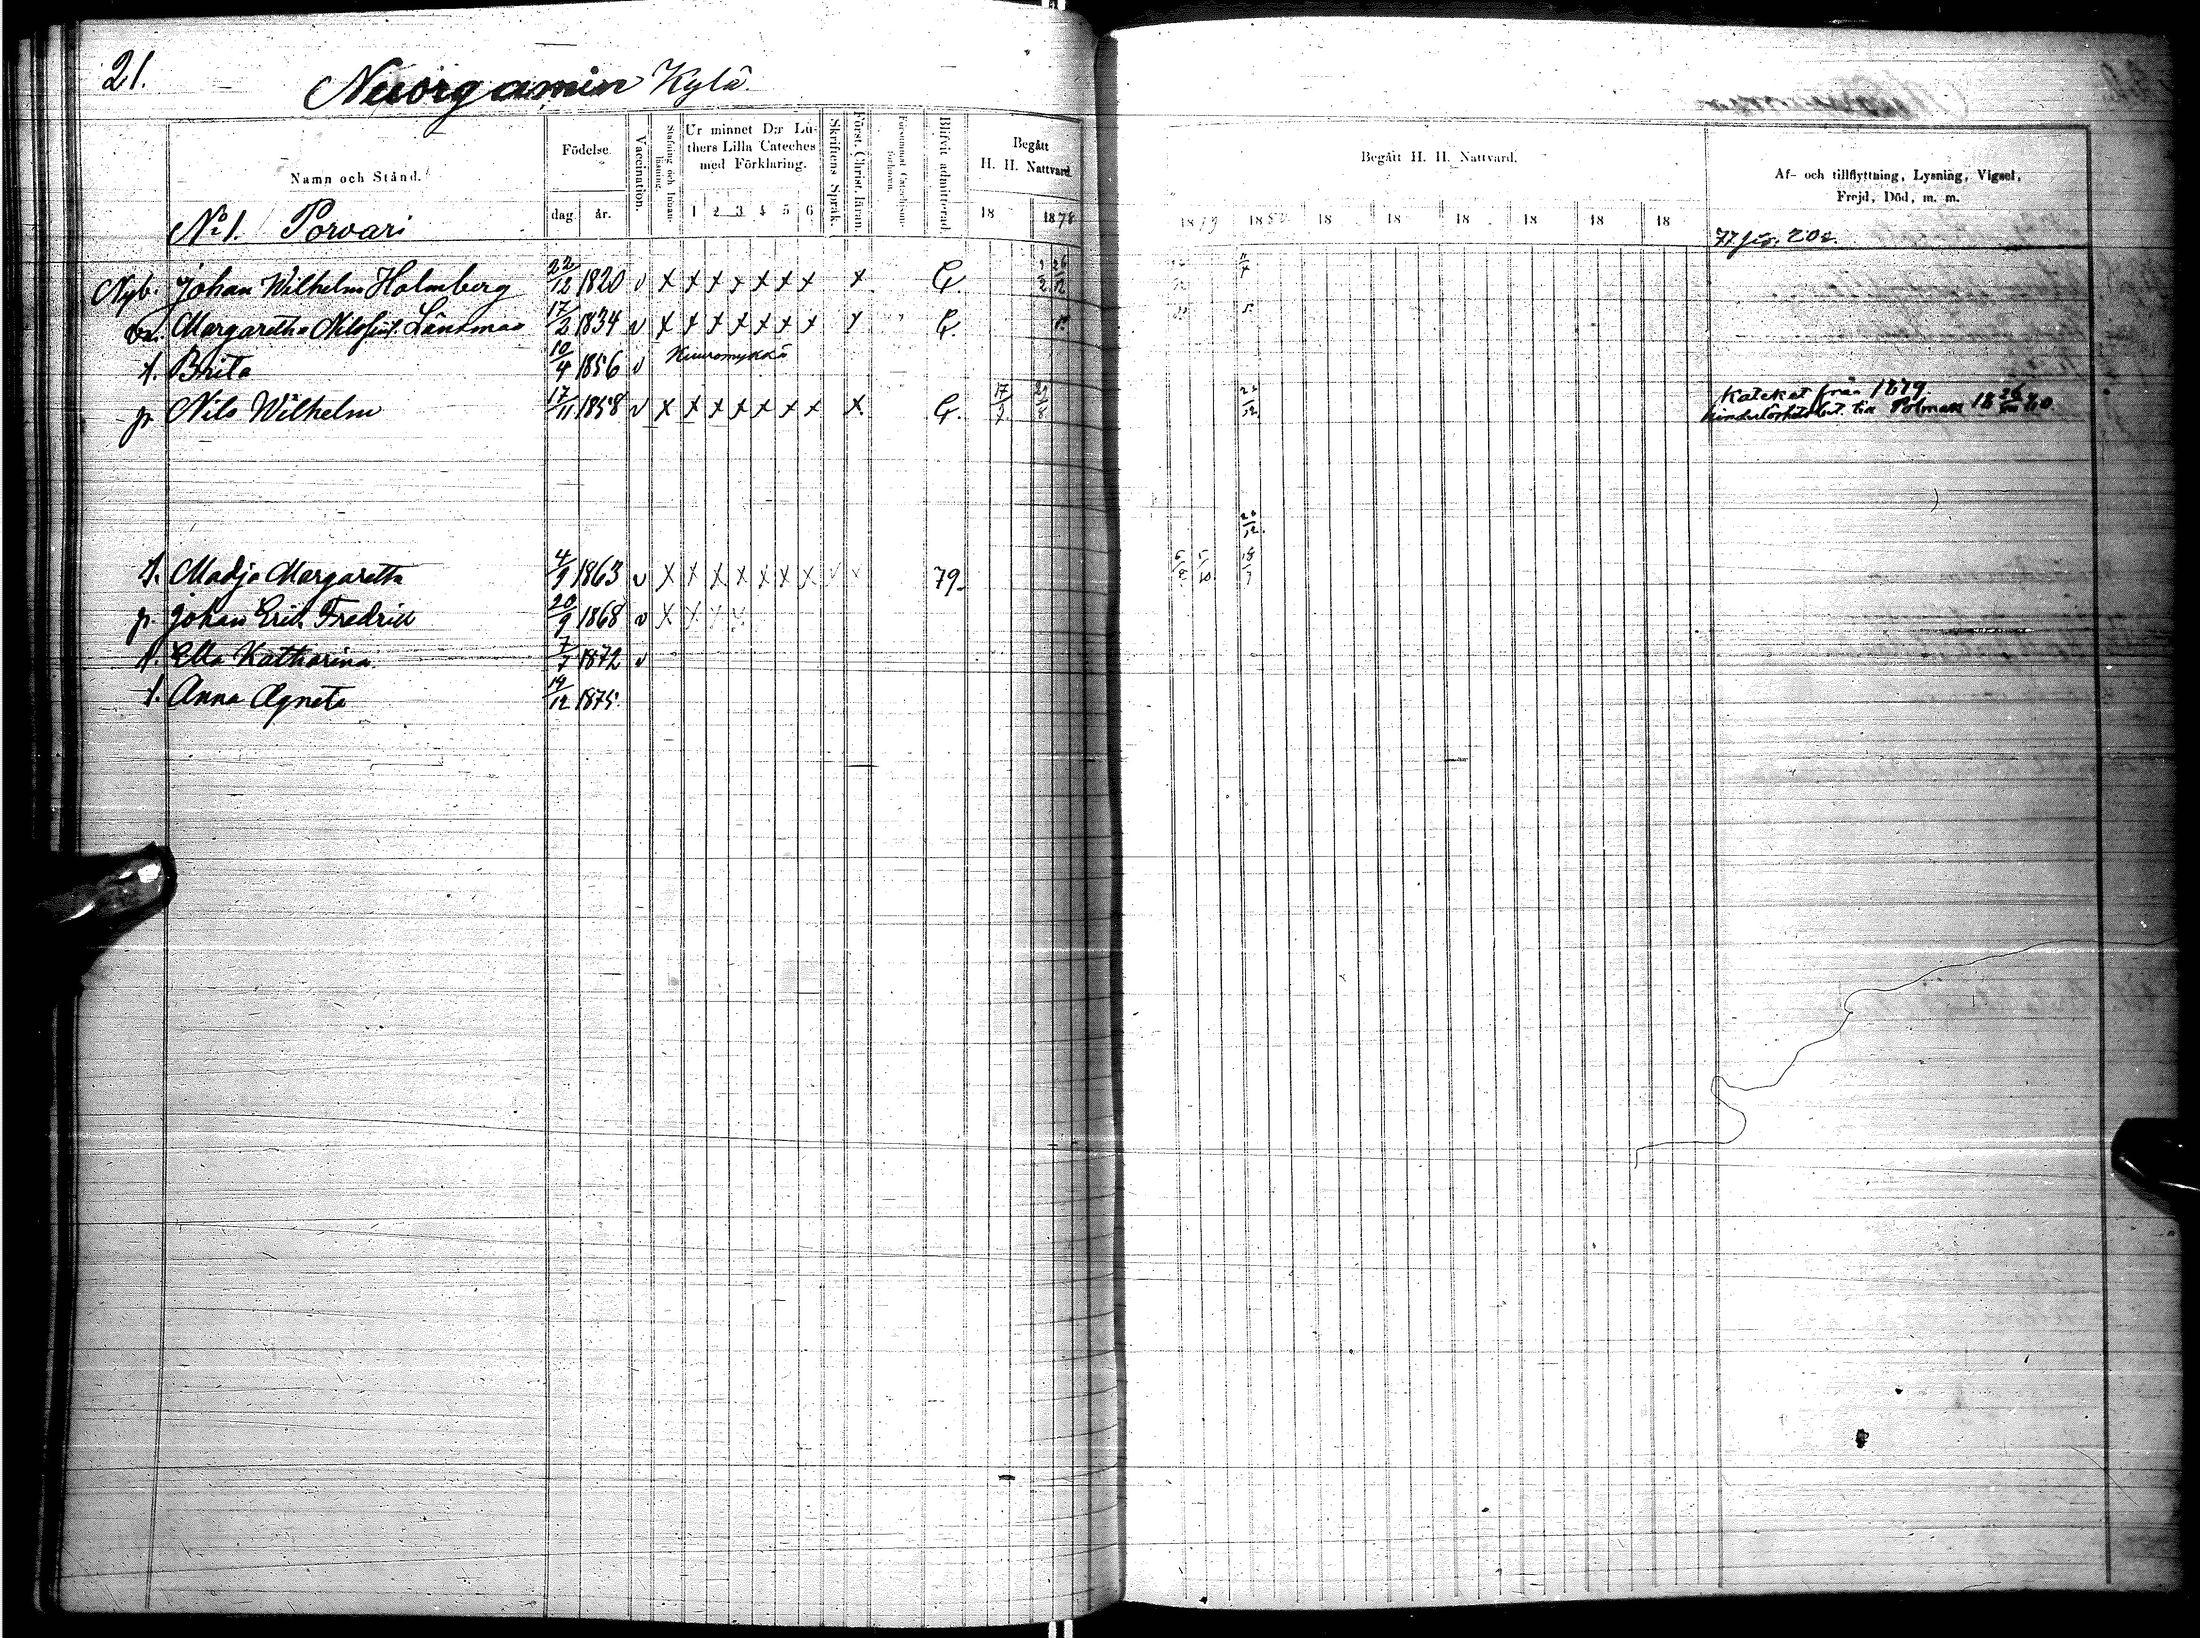 21.
Nuorgamin Kylä
Namn och Stånd.
Födelse.
dag. år.
Vaccination.
Stafning och Innanläsning.
Ur minnet D:r Luthers Lilla Cateches med Förklaring.
1 2 3 4 5 6
Skriftens Språk.
Först. Christ. läran.
Blifvit admitterad.
Begått H. H. Nattvard.
18 1878
Begått H. H. Nattvard.
1879 1880 18 18 18 18 18 18
Af- och tillflyttning, Lysning, Vigsel,
Frejd, Död, m. m.
No 1. Porvari
Nyb. Johan Wilhelm Holmberg 22/12 1820 v x x x x x x x x G.
Margaretha Nilsdr. Länsman 17/2 1834 v x x x x x x x x G.
f. Brita 10/4 1856 v Kuuromykkä
p. Nils Wilhelm 17/11 1858 v x x x x x x x x G. 17/2
Kateket från 1879
Hinderlöshetsbet. till Polmak
f. Madja Margaretha 4/9 1863 v x x x x x x x 79.
p. Johan Erik Fredrik 20/9 1868 v x x
f. Ella Katharina 7/7 1872 v
f. Anna Agneta 19/12 1875.